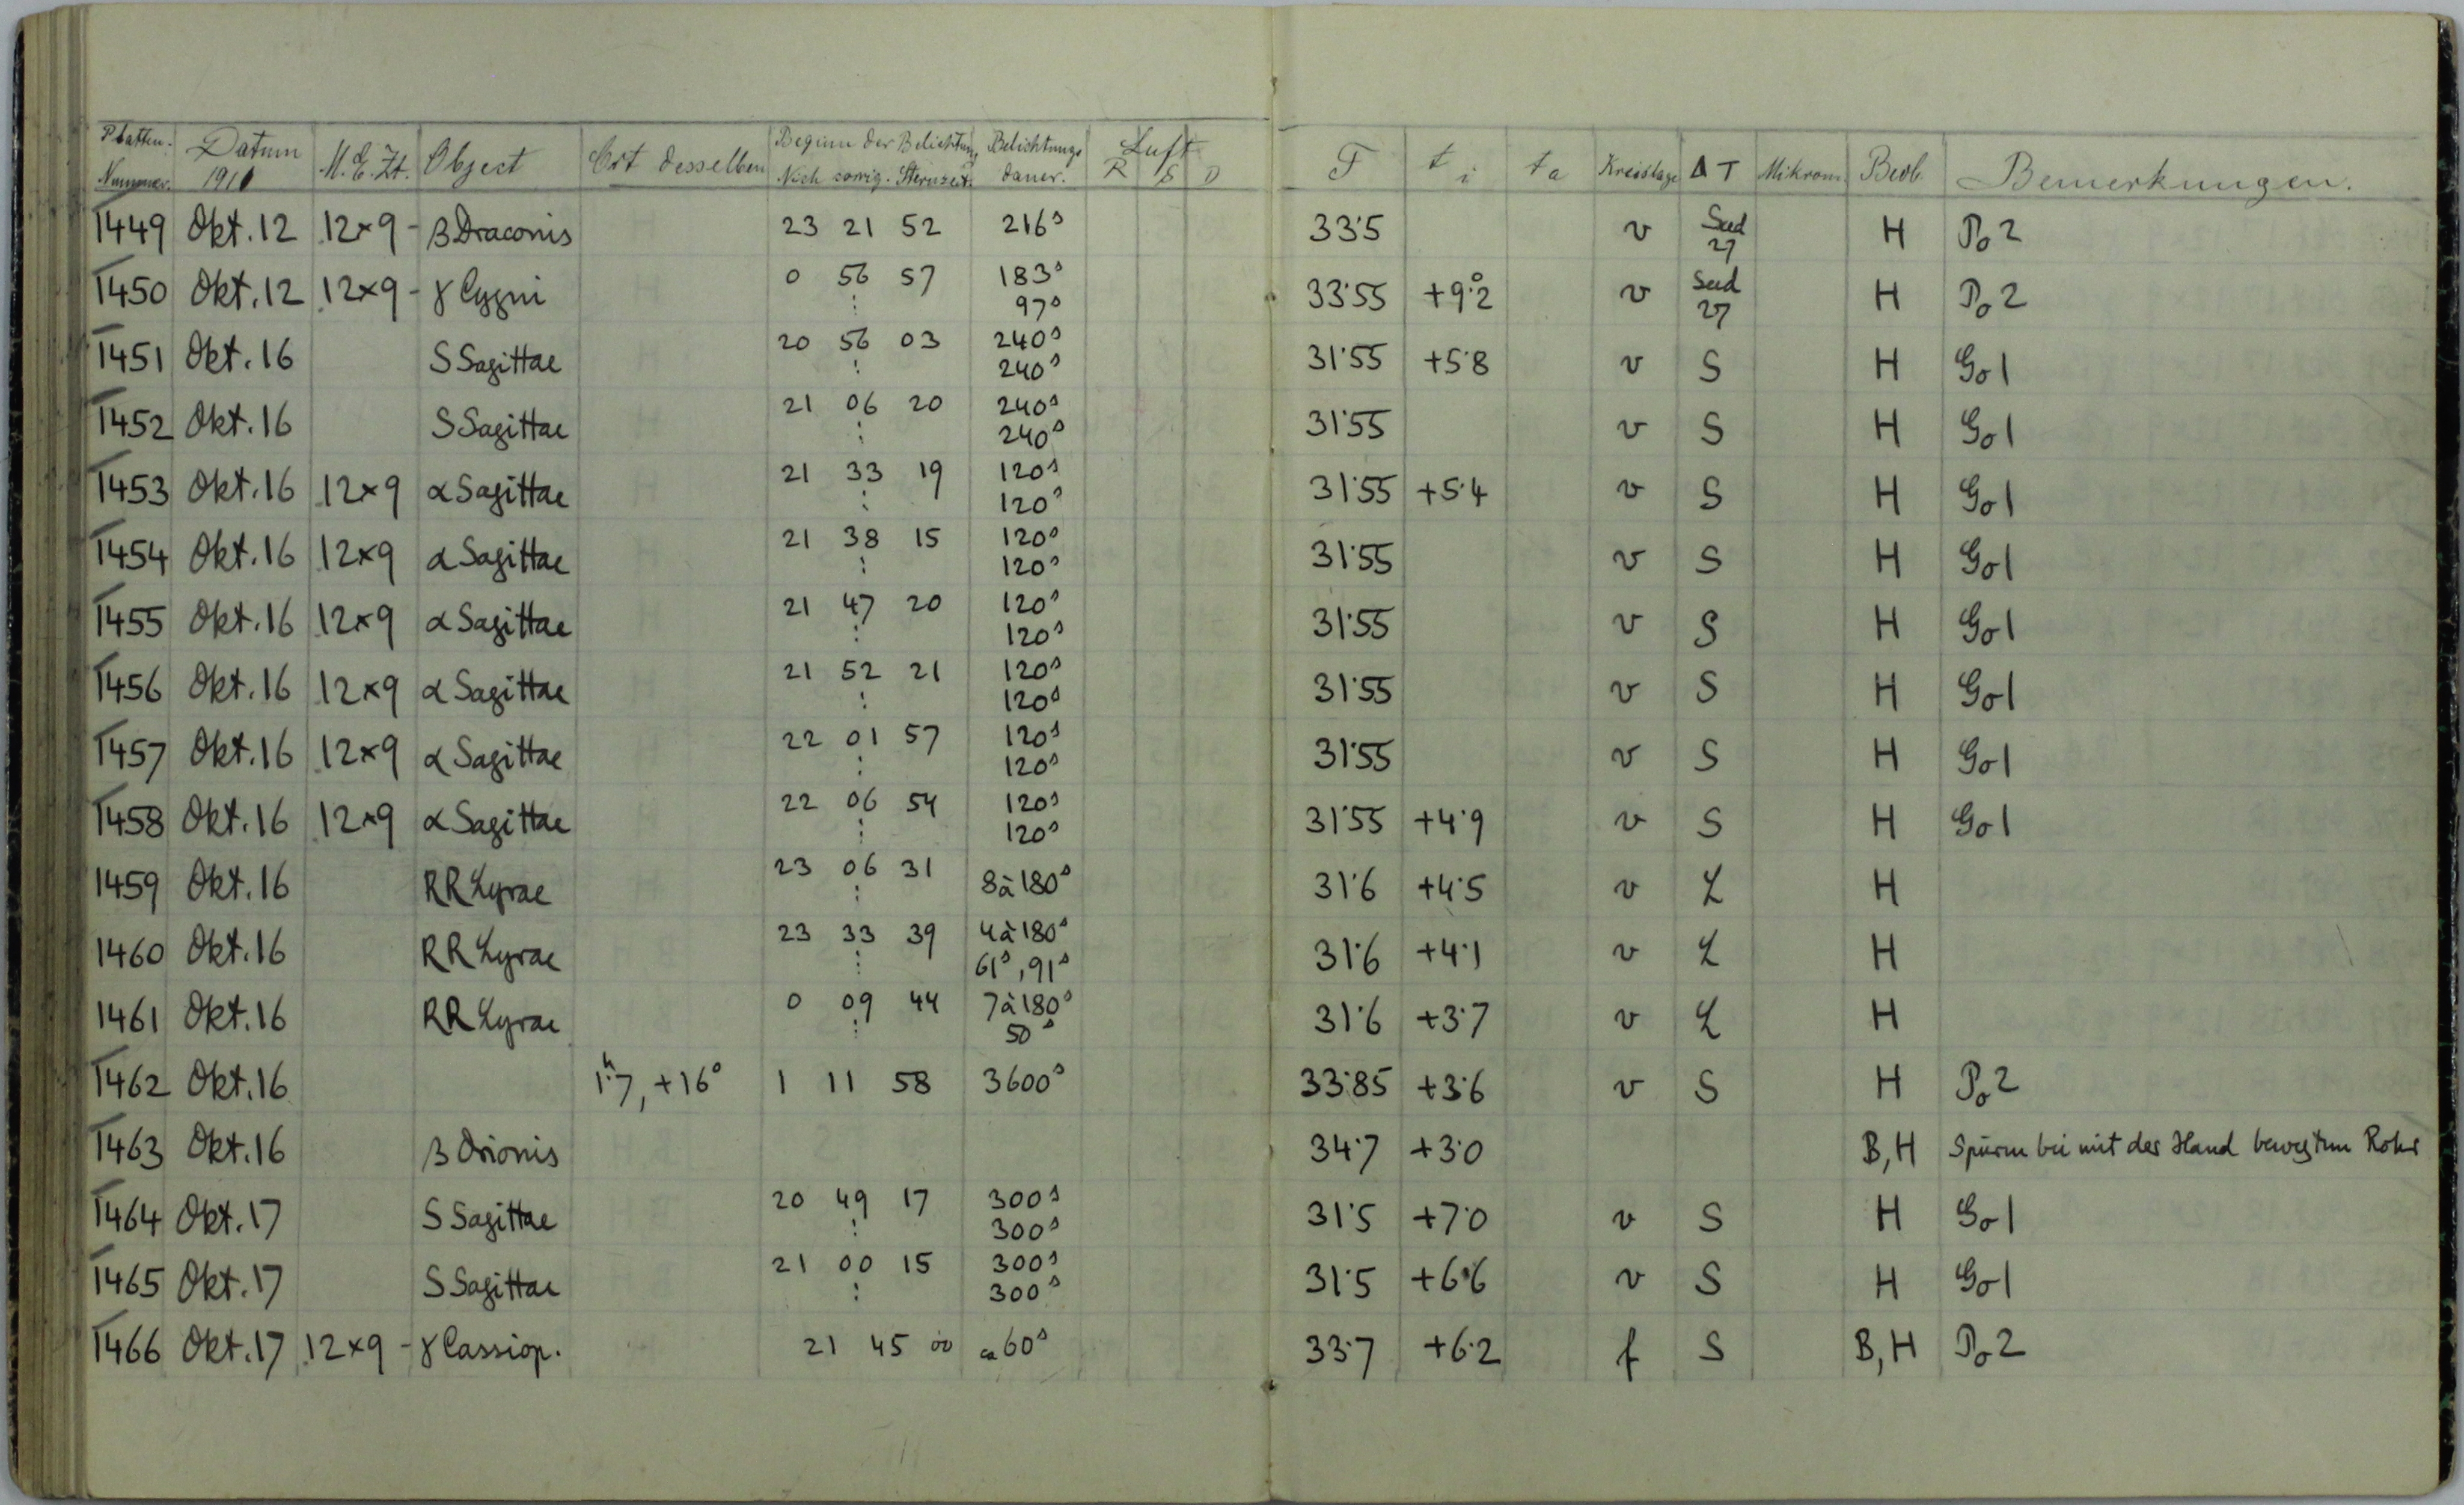 Platten- Nummer. Datum 1911 M.E.Zt. Object Ort desselben Beginn der Belichtung Sternzeit. Belichtungs dauer. Luft R S D F t i t a Kreislage ΔT Mikrom. Beob. Bemerkungen.
1449 Okt. 12 12×9 - β Draconis 23 21 52 216ˢ 33·5 v Sud 27 H Po 2
1450 Okt. 12 12×9 - γ Cygni 0 56 57 183ˢ 33·55 +9°·2 v Sud 27 H Po 2
: 97ˢ
1451 Okt. 16 S Sagittae 20 56 03 240ˢ 31·55 +5·8 v S H Go 1
: 240ˢ
1452 Okt. 16 S Sagittae 21 06 20 240ˢ 31·55 v S H Go 1
: 240ˢ
1453 Okt. 16 12×9 α Sagittae 21 33 19 120ˢ 31·55 +5·4 v S H Go 1
: 120ˢ
1454 Okt. 16 12×9 α Sagittae 21 38 15 120ˢ 31·55 v S H Go 1
: 120ˢ
1455 Okt. 16 12×9 α Sagittae 21 47 20 120ˢ 31·55 v S H Go 1
: 120ˢ
1456 Okt. 16 12×9 α Sagittae 21 52 21 120ˢ 31·55 v S H Go 1
: 120ˢ
1457 Okt. 16 12×9 α Sagittae 22 01 57 120ˢ 31·55 v S H Go 1
: 120ˢ
1458 Okt. 16 12×9 α Sagittae 22 06 54 120ˢ 31·55 +4·9 v S H Go 1
: 120ˢ
1459 Okt. 16 RR Lyrae 23 06 31 8 à 180ˢ 31·6 +4·5 v L H
:
1460 Okt. 16 RR Lyrae 23 33 39 4 à 180ˢ 31·6 +4·1 v L H
: 61ˢ, 91ˢ
1461 Okt. 16 RR Lyrae 0 09 44 7 à 180ˢ 31·6 +3·7 v L H
: 50ˢ
1462 Okt. 16 1ʰ·7, +16° 1 11 58 3600ˢ 33·85 +3·6 v S H Po 2
1463 Okt. 16 β Orionis 34·7 +3·0 B, H Spuren bei mit der Hand bewegtem Rohr
1464 Okt. 17 S Sagittae 20 49 17 300ˢ 31·5 +7·0 v S H Go 1
: 300ˢ
1465 Okt. 17 S Sagittae 21 00 15 300ˢ 31·5 +6·6 v S H Go 1
: 300ˢ
1466 Okt. 17 12×9 - γ Cassiop. 21 45 00 ca 60ˢ 33·7 +6·2 f S B, H Po 2